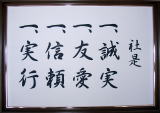 社是
一、誠実
一、友愛
一、信頼
一、実行